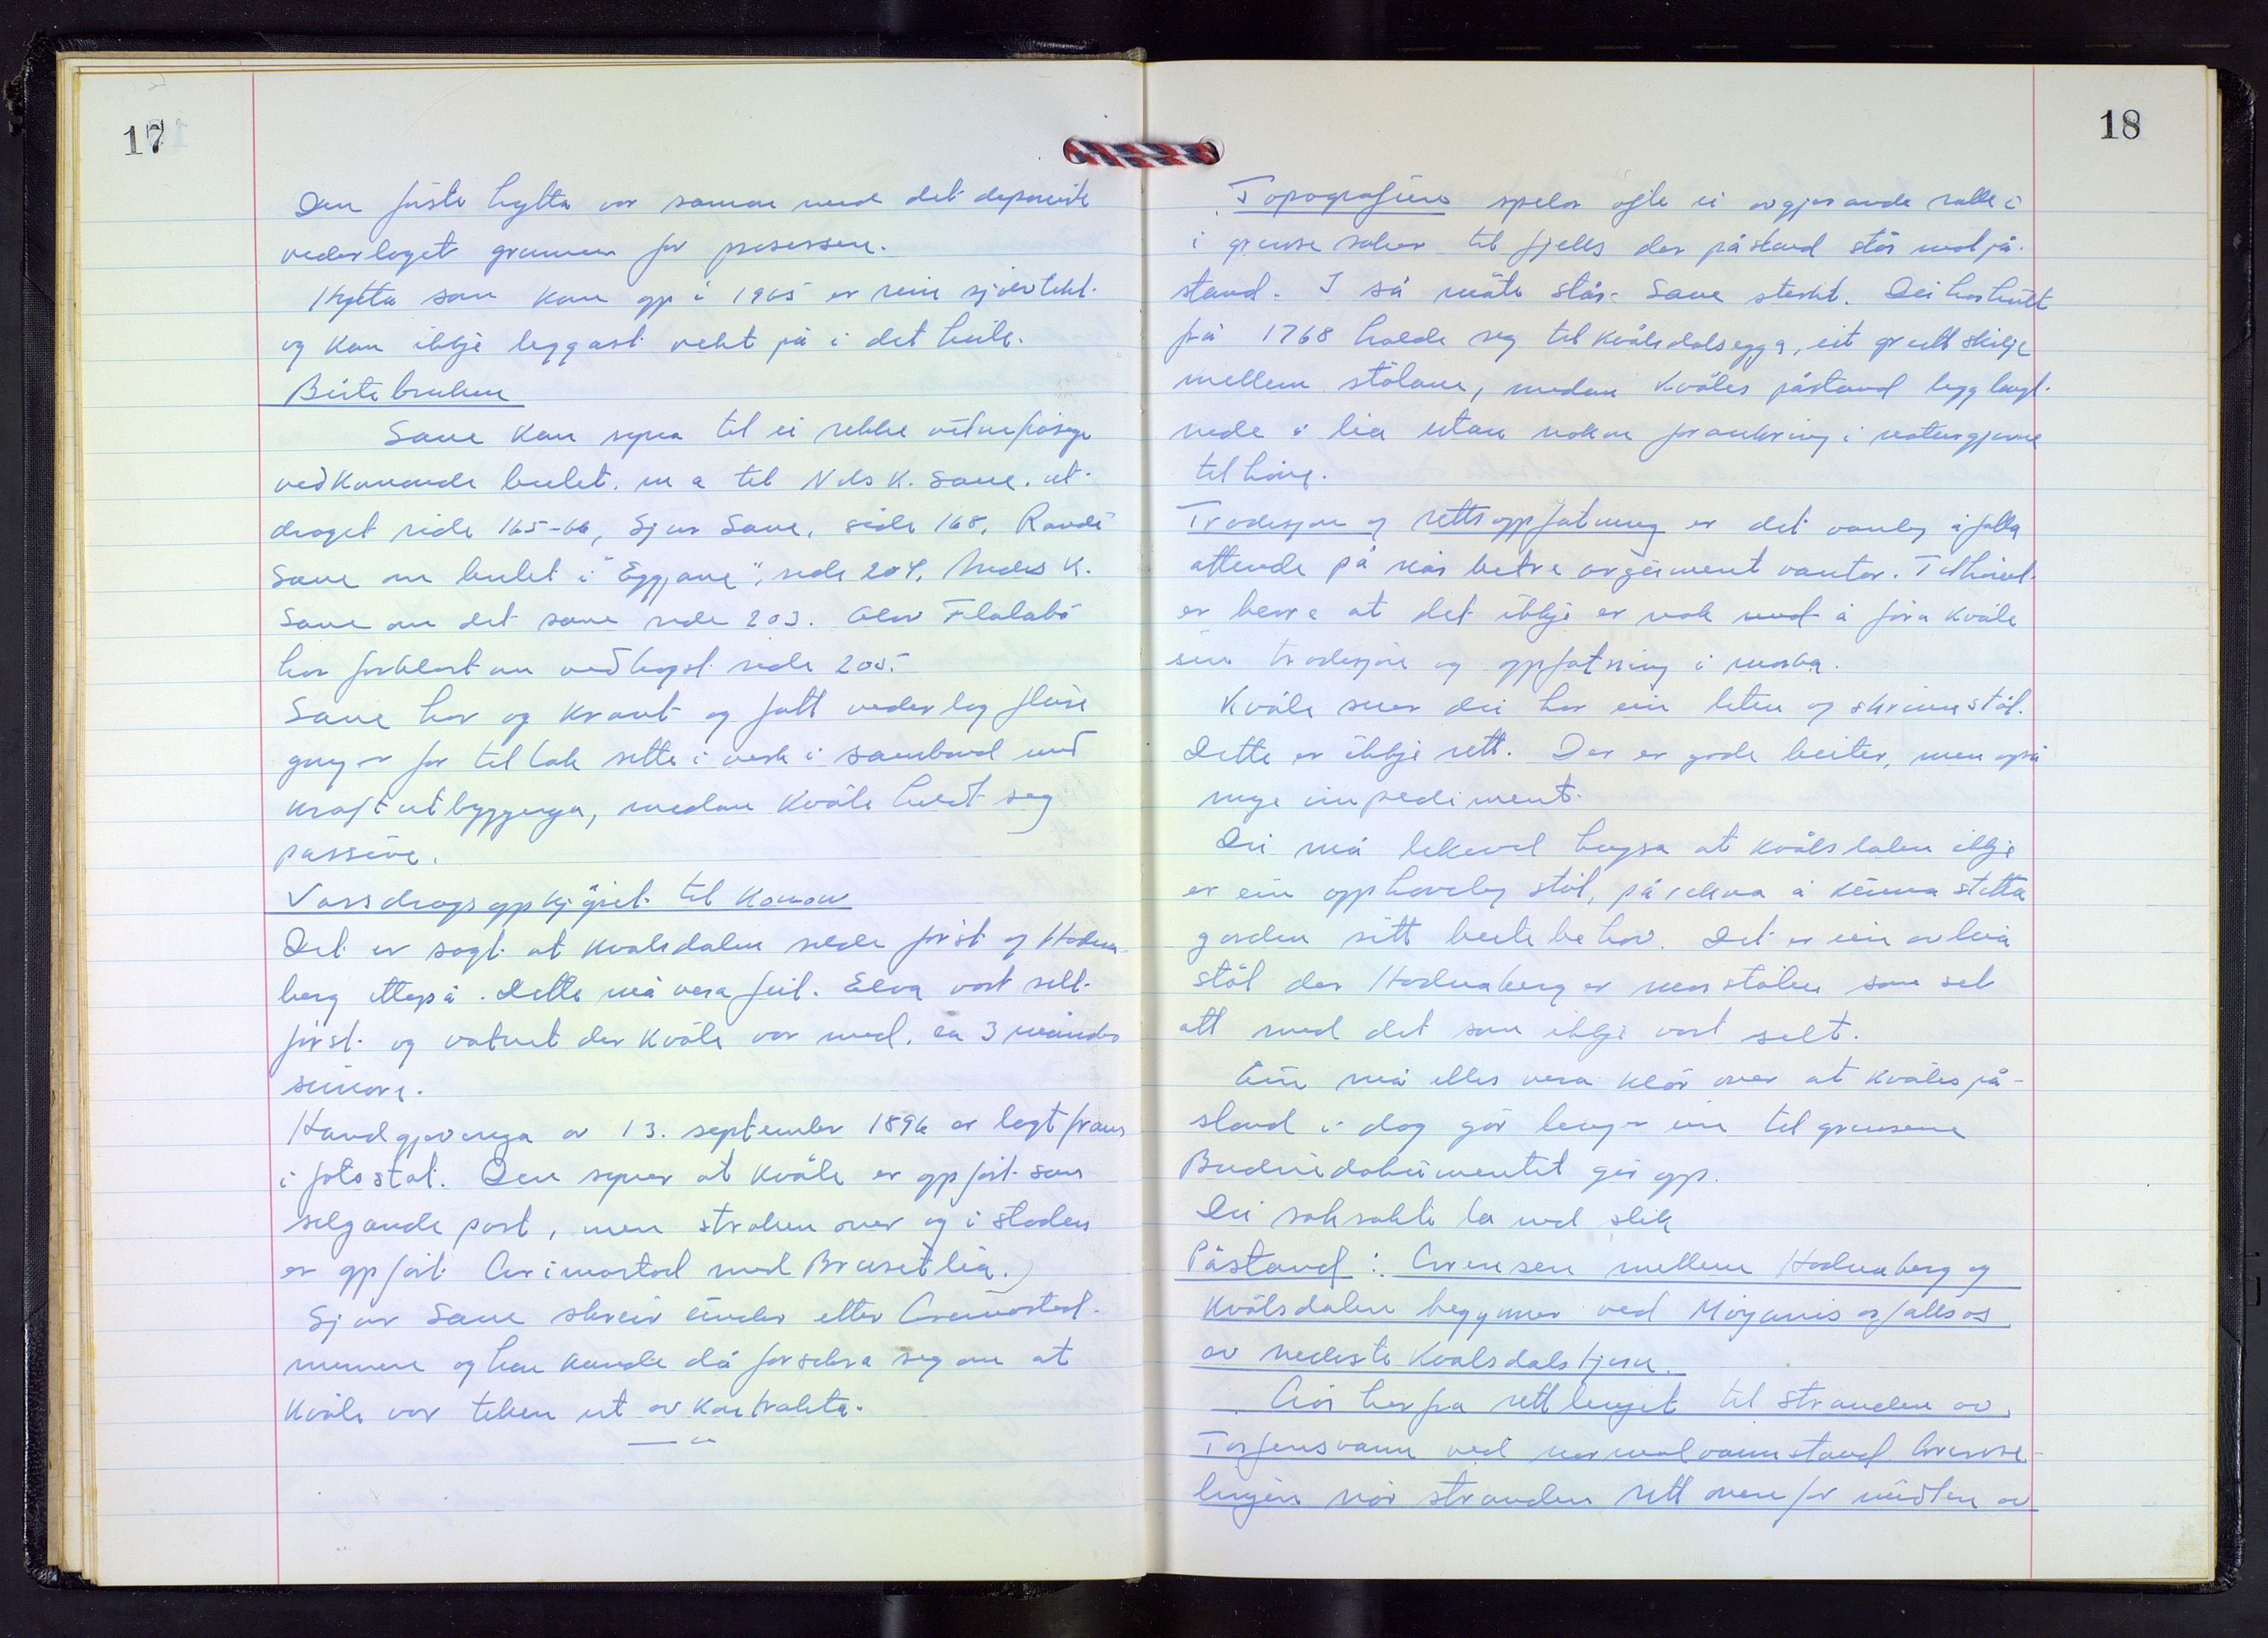 17
Den første hytta var saman med det deponerte
vederlaget grunnen for prosessen.
Hytta som kom opp i 1965 er rein sjøvtekt
og kan ikkje leggast vekt på i det heile.
Beitebruken
Save kan syna til ei rekke vitneførsege
vedkomande beitet. m a til Nils K. Save. ut-
draget side 165-66, Sjur Save, side 168, Randi
Save om beitet i "Eggjane", side 204, Anders K.
Save om det same side 203. Olav Flatabø
har forklart om vedhogst side 205.
Save har og kravt og fått vederlag fleire
gonger for tiltak sette i verk i samband med
kraftutbygginga, medan Kvåle heldt seg
passive.
Vassdragsoppkjøpet til Konow
Det er sagt at Kvålsdalen selde først og Hodna-
berg etterpå. Dette må vera feil. Elva vart selt
først og vatnet der Kvåle var med, ca 3 månder
seinare.
Handgjevinga av 13. september 1896 er lagt fram
i fotostat. Den syner at Kvåle er oppført som
selgande part, men stroken over og i staden
er oppført Grimastad med Brusetlia.)
Sjur Save skreiv under etter Grimastad-
mennene og han kunde då forsikra seg om at
Kvåle var teken ut av kontrakta.
18
Topografien spelar ofte ei avgjerande rolle i
i grense saker til fjells der påstand står mot på-
stand. I så måte står Save sterkt. Dei har heilt
frå 1768 halde seg til Kvålsdalsegga, eit greitt skilje
mellem stølane, medan Kvåles påstand ligg langt
nede i lia utan nokon forankring i naturgjevne
tilhøve.
Tradisjon og rettsoppfatning er det vanleg å falla
attende på når betre argument vantar. Tilhøvet
er berre at det ikkje er nok med å føra Kvåle
sin tradisjon og oppfatning i marka.
Kvåle seier dei har ein liten og skrinn støl.
Dette er ikkje rett. Der er gode beiter, men også
mye impediment.
Dei må likevel hugsa at Kvålsdalen ikkje
er ein opphaveleg støl, på rekna å kunna stetta
garden sitt beitebehov. Det er ein avleia
støl der Hodnaberg er morstølen som sat
att med det som ikkje vart selt.
Ein må elles vera klår over at Kvåles på-
stand i dag går lenger inn til grensene
Budeiedokumentet gir opp.
Dei saksøkte la ned slik
Påstand: Grensen mellem Hodnaberg og
Kvålsdalen begynner ved Myganis osfallsos
av nedeste Kvålsdalstjern.
Går herfra rettlinjet til stranden av
Torfinsvann ved normalvannstand. Grense-
linjen når stranden rett ovenfor midten av